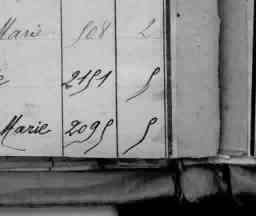 Marie 508 2
2151 5
Marie 2095 5